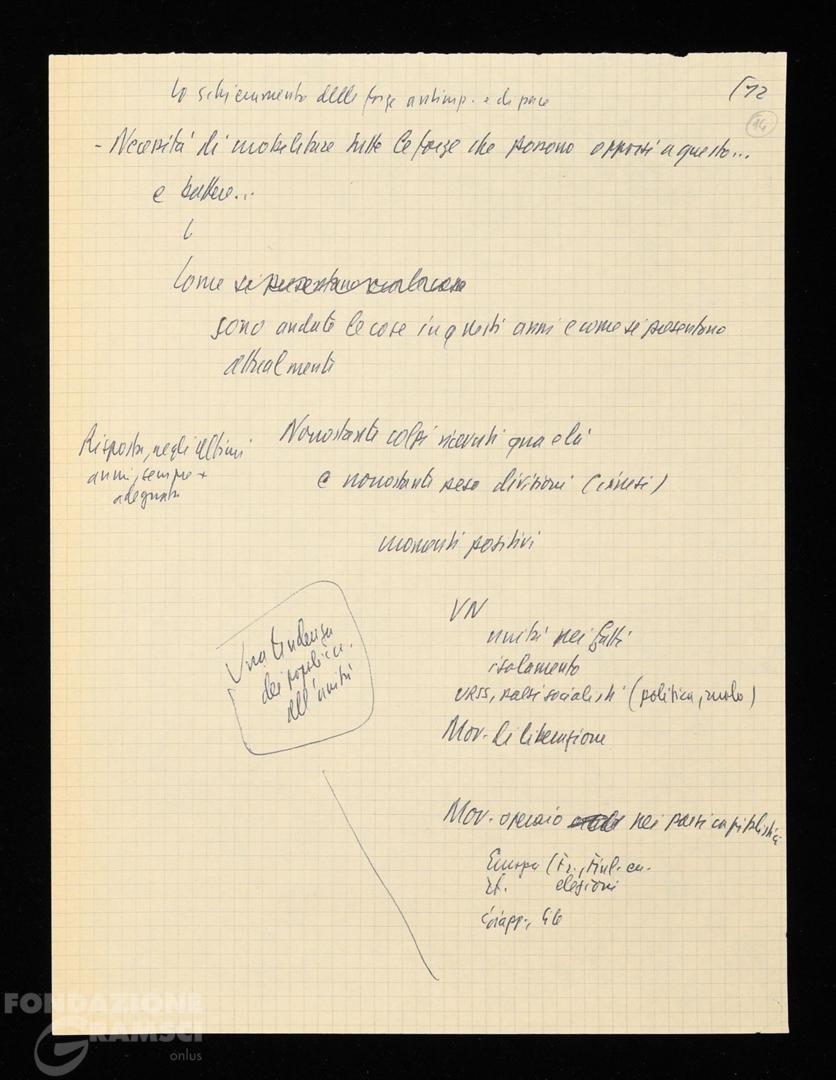 Lo schieramento delle forze antimp. e di pace
12
14
- Necessità di mobilitare tutte le forze che possono opporsi a questo...
e battere...
Come si presentano
sono andate le cose in questi anni e come si presentano
attualmente
Risposta, negli ultimi
anni, sempre +
adeguata
Nonostante colpi ricevuti qua e là
e nonostante peso divisioni (cinesi)
momenti positivi
VN
unità nei fatti
isolamento
URSS, paesi socialisti (politica, ruolo)
Mov. di liberazione
Una tendenza
dei popoli
all'unità
Mov. operaio nei paesi capitalistici
Europa (Fr., Finl.
It. elezioni
Giapp., Cile
FONDAZIONE
GRAMSCI
onlus